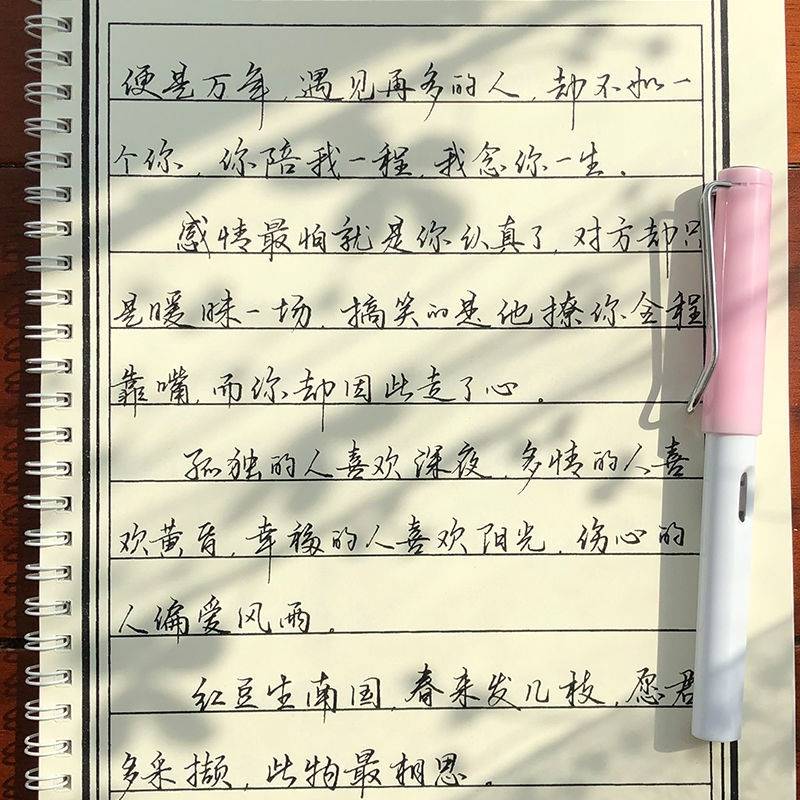 便是万年，遇见再多的人，却不如一
个你，你陪我一程，我念你一生。
感情最怕就是你认真了，对方却只
是暧昧一场，搞笑的是他撩你全程
靠嘴，而你却因此走了心。
孤独的人喜欢深夜，多情的人喜
欢黄昏，幸福的人喜欢阳光，伤心的
人偏爱风雨。
红豆生南国，春来发几枝，愿君
多采撷，此物最相思。